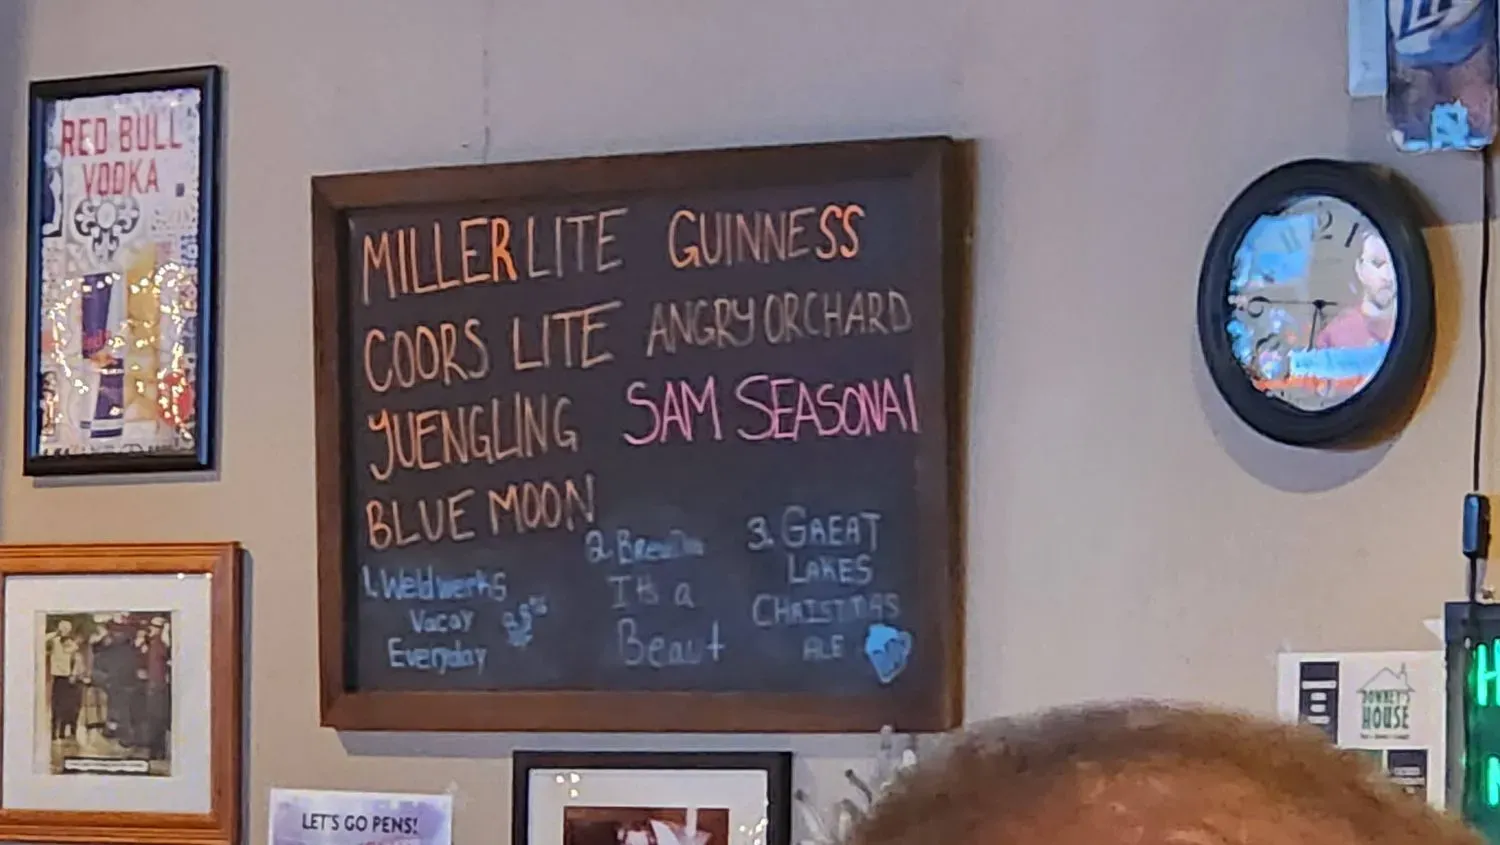 RED BULL
VODKA
MILLER LITE
COORS LITE
YUENGLING
BLUE MOON
GUINNESS
ANGRY ORCHARD
SAM SEASONAl
1. Weldwerks
Vacay
Everyday
2. Brew
It's a
Beaut
3. GREAT
LAKES
CHRISTMAS
ALE
12
1
9
6
LET'S GO PENS!
DOWNEY'S
HOUSE
H